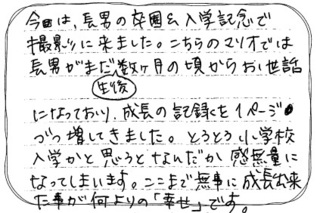 今日は、長男の卒園&入学記念で
撮影に来ました。こちらのマリオでは
長男がまだ生後数ヶ月の頃からお世話
になっており、成長の記録を1ページ
づつ増してきました。とうとう小学校
入学かと思うとなんだか感無量に
なってしまいます。ここまで無事に成長出来
た事が何よりの「幸せ」です。